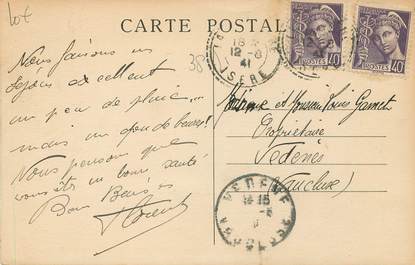 lot
CARTE POSTAL
Nous faisons un
séjour excellent
un peu de pluie...
mais un peu de beurre!
Nous pensons que
vous êts en bonne santé
Bons Baisers
38
18
12-8
41
ISERE
40
POSTES
40
POSTES
Madame et Monsieur Louis
Propriétaire
Vedènes
(Vaucluse)
VEDENE
14 15
VAUCLUSE